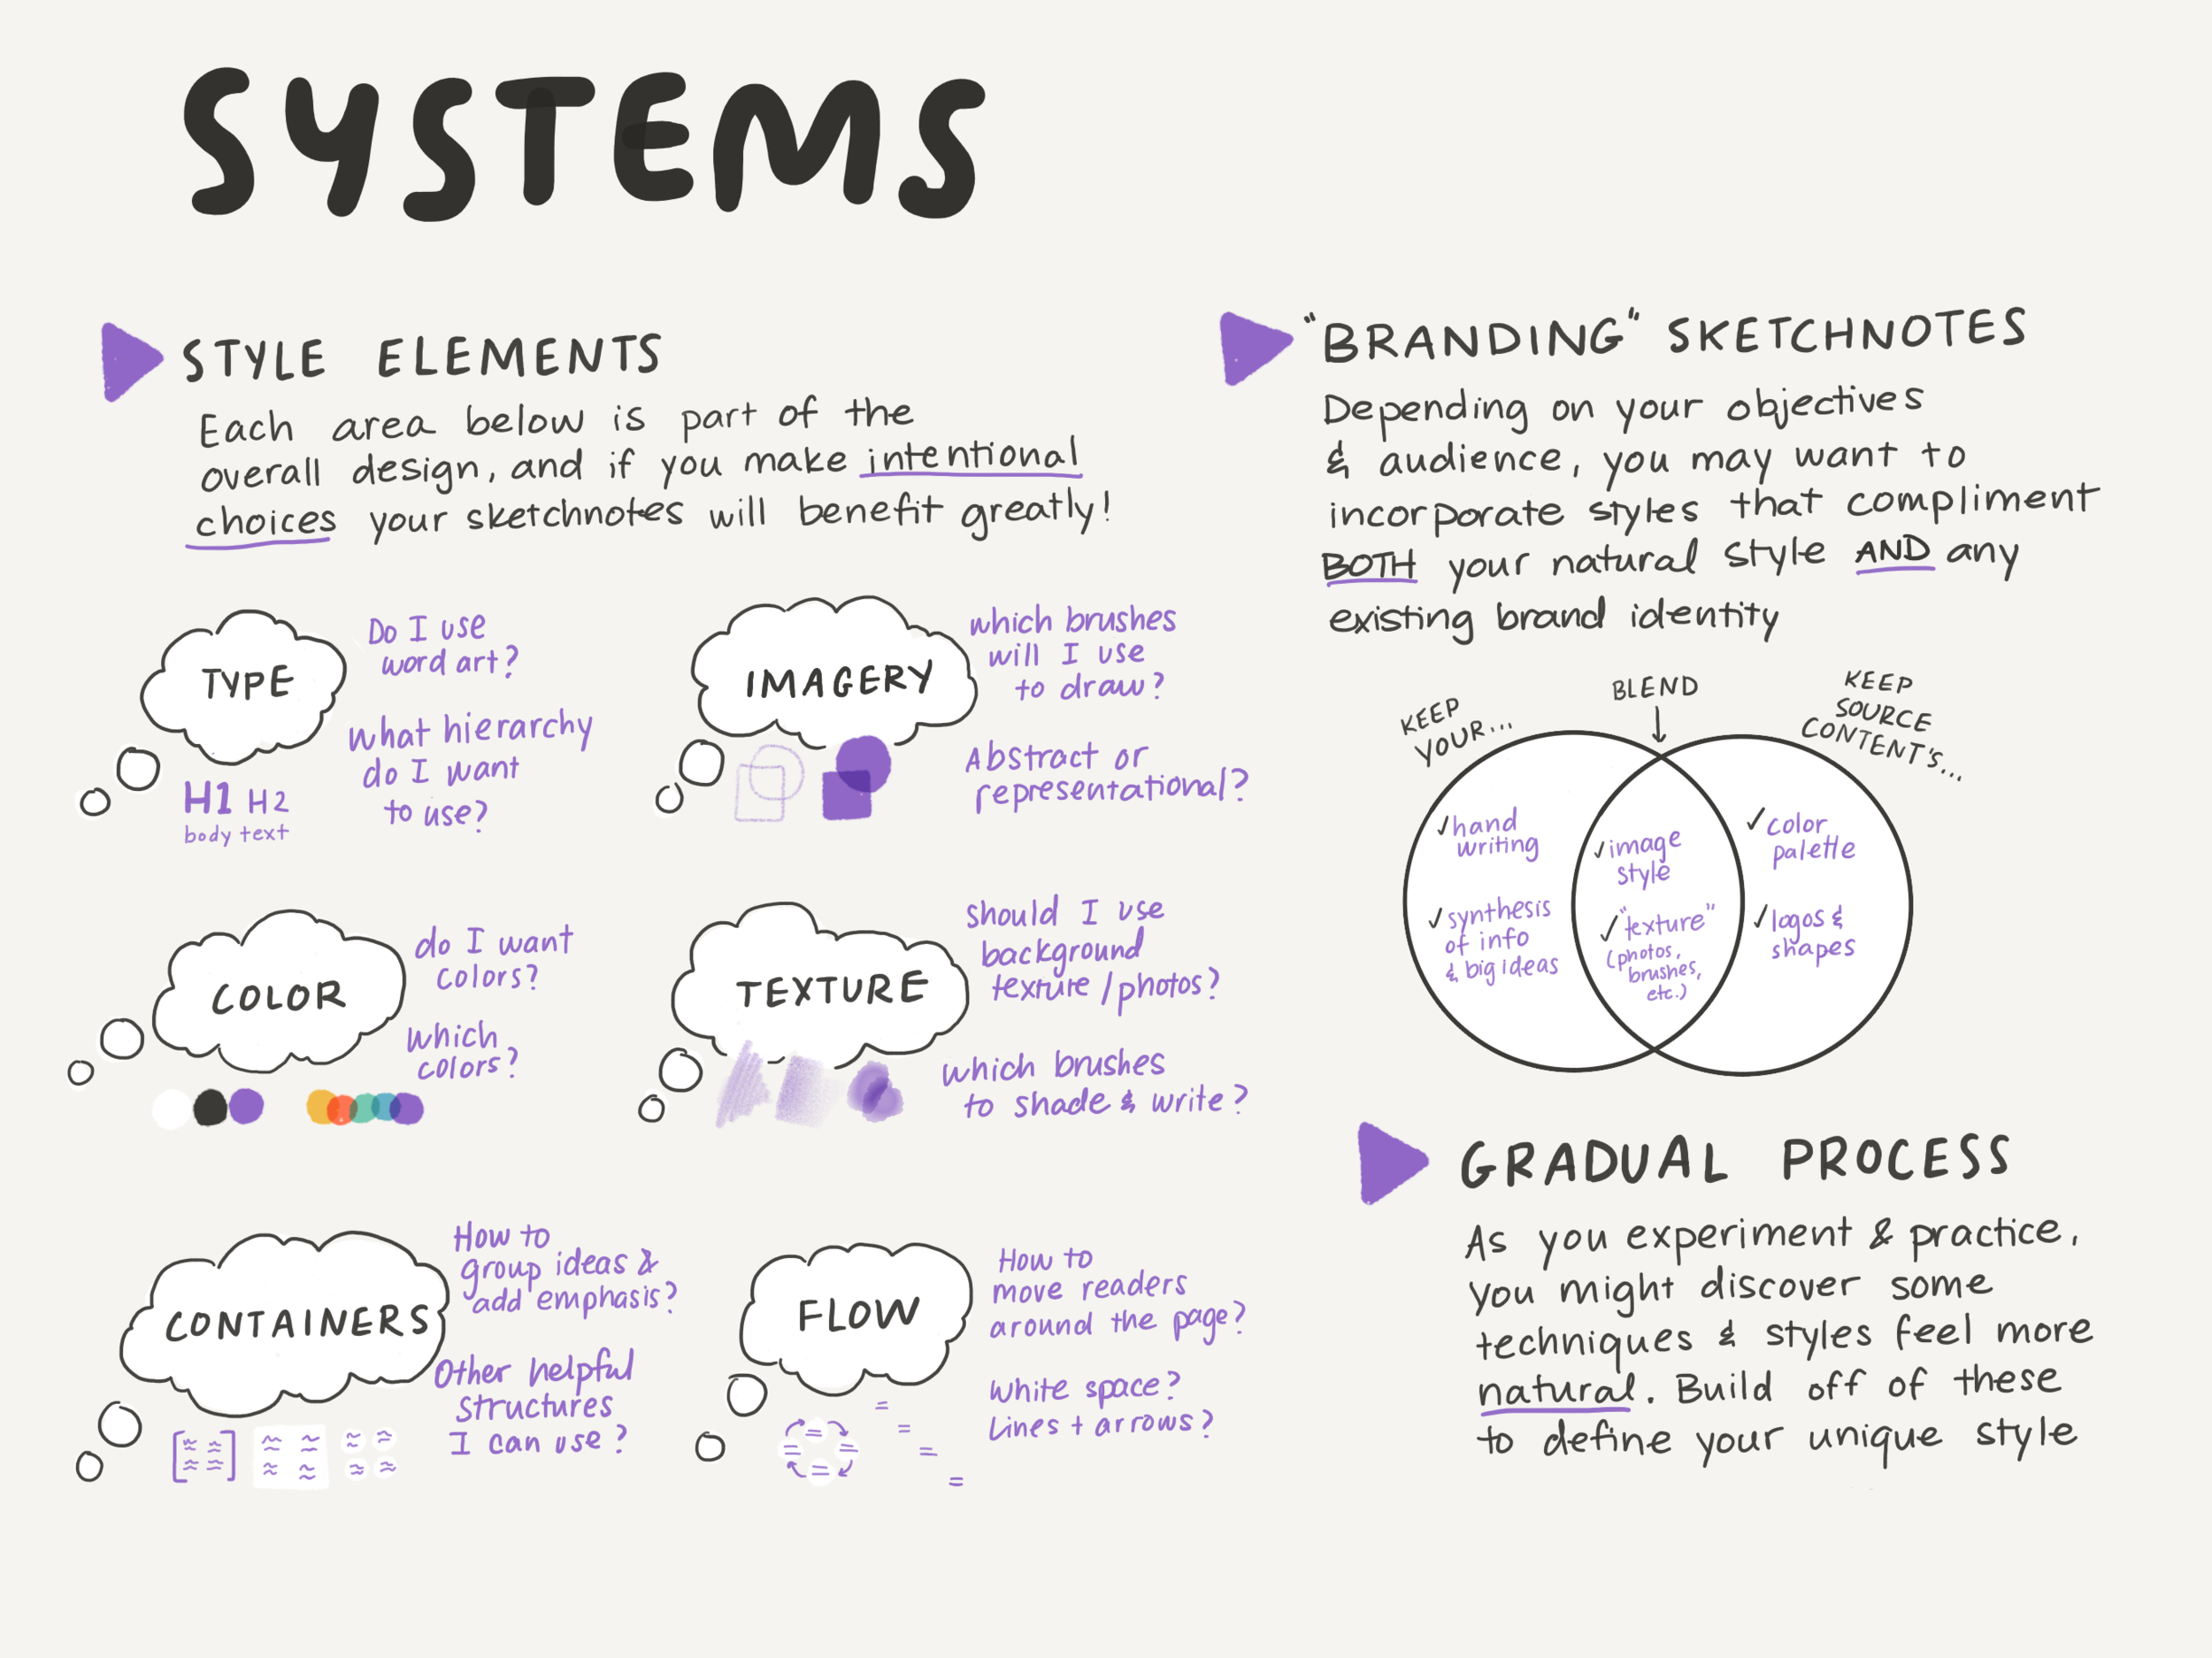 SYSTEMS
STYLE ELEMENTS
Each area below is part of the
overall design, and if you make intentional
choices your sketchnotes will benefit greatly!
TYPE
Do I use
word art?
What hierarchy
do I want
to use?
H1 H2
body text
IMAGERY
which brushes
will I use
to draw?
Abstract or
representational?
COLOR
do I want
colors?
Which
colors?
TEXTURE
should I use
background
texture/photos?
which brushes
to shade & write?
CONTAINERS
How to
group ideas &
add emphasis?
Other helpful
structures
I can use?
FLOW
How to
move readers
around the page?
White space?
Lines + arrows?
"BRANDING" SKETCHNOTES
Depending on your objectives
& audience, you may want to
incorporate styles that compliment
BOTH your natural style AND any
existing brand identity
KEEP
YOUR...
BLEND
KEEP
SOURCE
CONTENT'S...
✓hand
writing
✓synthesis
of info
& big ideas
✓image
style
✓"texture"
(photos,
brushes,
etc.)
✓color
palette
✓logos &
shapes
GRADUAL PROCESS
As you experiment & practice,
you might discover some
techniques & styles feel more
natural. Build off of these
to define your unique style